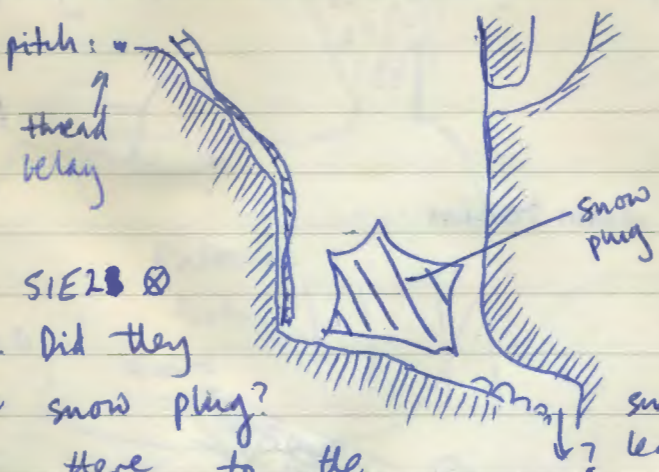 pitch:
thread
belay
snow
plug
S1E2 ⊗
Did they
snow plug?
Here to the
?